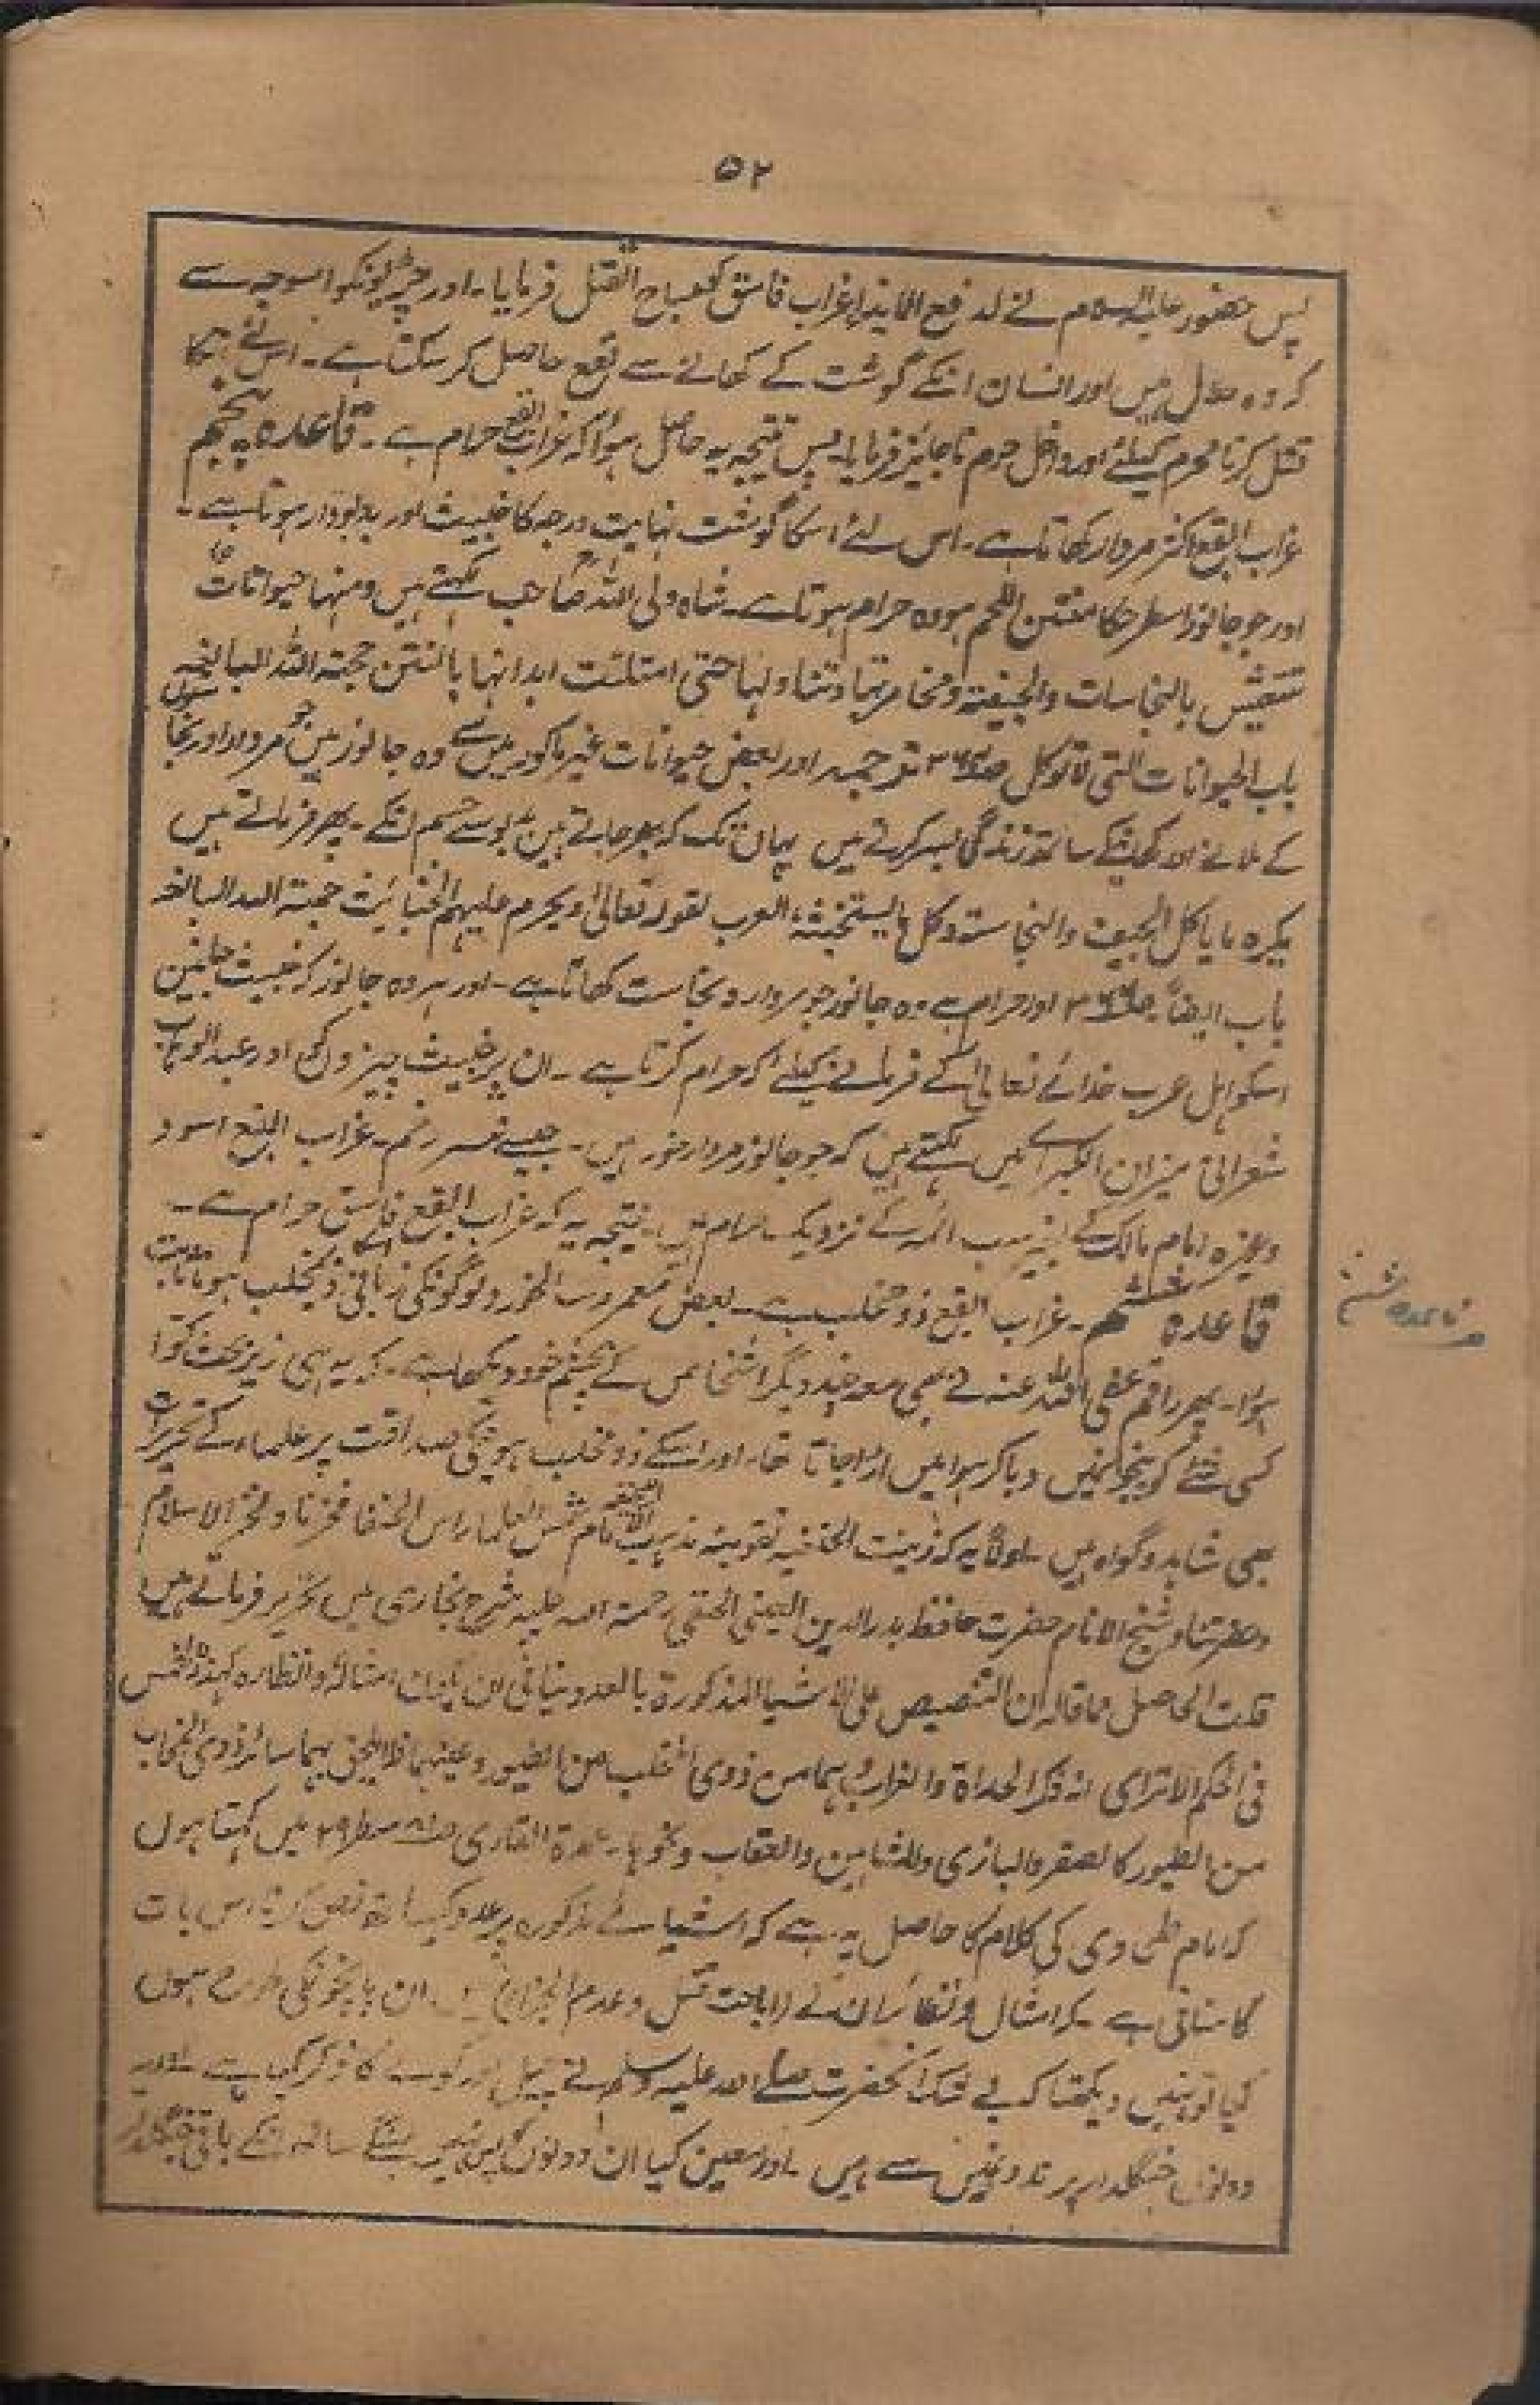 ۵۲
پس حضور علیہ السلام نے لدفع الایذا غراب فاسق کو مباح القتل فرمایا۔ اور چڑیونکو اسوجہ سے
کہ وہ حلال ہیں اور انسان انکے گوشت کے کھانے سے نفع حاصل کر سکتا ہے۔ اس لئے انکا
قتل کرنا محرم کیلئے اور داخل حرم ناجائز فرمایا۔ پس نتیجہ یہ حاصل ہوا کہ غراب ابقع حرام ہے۔ قاعدہ پنجم
غراب ابقع اکثر مردار کھاتا ہے۔ اس لئے اسکا گوشت نہایت درجہ کا خبیث اور بدبودار ہوتا ہے۔
اور جو جانور اسطرحکا منتن اللحم ہو وہ حرام ہوتا ہے۔ شاہ ولی اللہ صاحب لکھتے ہیں ومنہا حیوانات
تتعیش بالنجاسات والجیفة ومخامرتہا وتناولہا حتی امتلئت ابدانہا بالنتن حجتہ اللہ البالغہ
باب الحیوانات التی لا توکل ترجمہ اور بعض حیوانات غیر ماکول میں سے وہ جانور ہیں جو مردار اور نجاستوں
کے ملانے اور کھانیکے ساتھ زندگی بسر کرتے ہیں یہاں تک کہ بھر جاتے ہیں بدبو سے جسم انکے۔ پھر فرماتے ہیں
یکرہ ما یاکل الجیف والنجاستہ وکل ما یستخبثہ العرب لقولہ تعالی ویحرم علیہم الخبائث حجتہ اللہ البالغہ
باب ایضاً اور حرام ہے وہ جانور جو مردار و نجاست کھاتا ہے۔ اور ہر وہ جانور کہ خبیث جانیں
اسکو اہل عرب خدائے تعالیٰ کے فرمانے کیلئے کہ حرام کرتا ہے۔ ان پر خبیث چیزوں کی اور عبدالوہاب
شعرانی میزان الکبراے میں لکھتے ہیں کہ جو جانور مردار خور ہیں۔ جیسے نسر رخم۔ غراب ابقع اسود
وغیرہ امام مالک کے بغیر سب ائمہ کے نزدیک حرام ہیں۔ نتیجہ یہ کہ غراب ابقع فاسق حرام ہے۔
قاعدہ ششم۔ غراب ابقع ذو مخلب ہے۔ بعض معمر و سالخورد لوگونکی زبانی اسکا ذی مخلب ہونا ثابت
ہوا۔ پھر راقم عفی اللہ عنہ نے بھی معہ چند دیگر اشخاص کے بچشم خود دیکھا ہے۔ کہ یہ ہی زیر بحث کوا
کسی شئے کو پنجوں میں دبا کر ہوا میں اڑا جاتا تھا۔ اور اسکے ذو مخلب ہونیکی صداقت پر علماء کے تحریرات
بھی شاہد و گواہ ہیں۔ اولاً یہ کہ زینت الحنفیہ تقویتہ مذہب الامام شمس العلماء راس الحنفا فخرنا و فخر الاسلام
وحضرتنا و شیخ الانام حضرت حافظ بدرالدین العینی الحنفی رحمة اللہ علیہ شرح بخاری میں تحریر فرماتے ہیں
قلت الحاصل مما قالہ ان التنصیص علی الاشیاء المذکورة بالعدد ینافی ان یکون امثالہ وانظارہ کہذہ الخمس
فی الحکم الا ترای انہ ذکر الحداة والغراب وہما من ذوی المخلب من الطیور وعینہما فلا یلحق بہما سائر ذوی المخالب
من الطیور کالصقر والبازی والشاہین والعقاب ونحوہا۔ عمدة القاری سطر ۲۹ میں کہتا ہوں
کہ امام طحاوی کی کلام کا حاصل یہ ہے کہ اشیائے مذکورہ پر عدد کے ساتھ نص کرنا اس بات
کا منافی ہے۔ کہ امثال و نظائر ان کے اباحت قتل و عدم الجزا میں ان پانچونکی طرح ہوں
کیا تو نہیں دیکھتا کہ بے شک آنحضرت صلے اللہ علیہ وسلم نے چیل اور کوے کا ذکر کیا ہے۔ اور یہ
دونوں چنگلدار پرندونمیں سے ہیں۔ اور معین کیا ان دونوں کو پس نہیں ساتھ انکے باقی چنگلدار
قاعدہ ششم